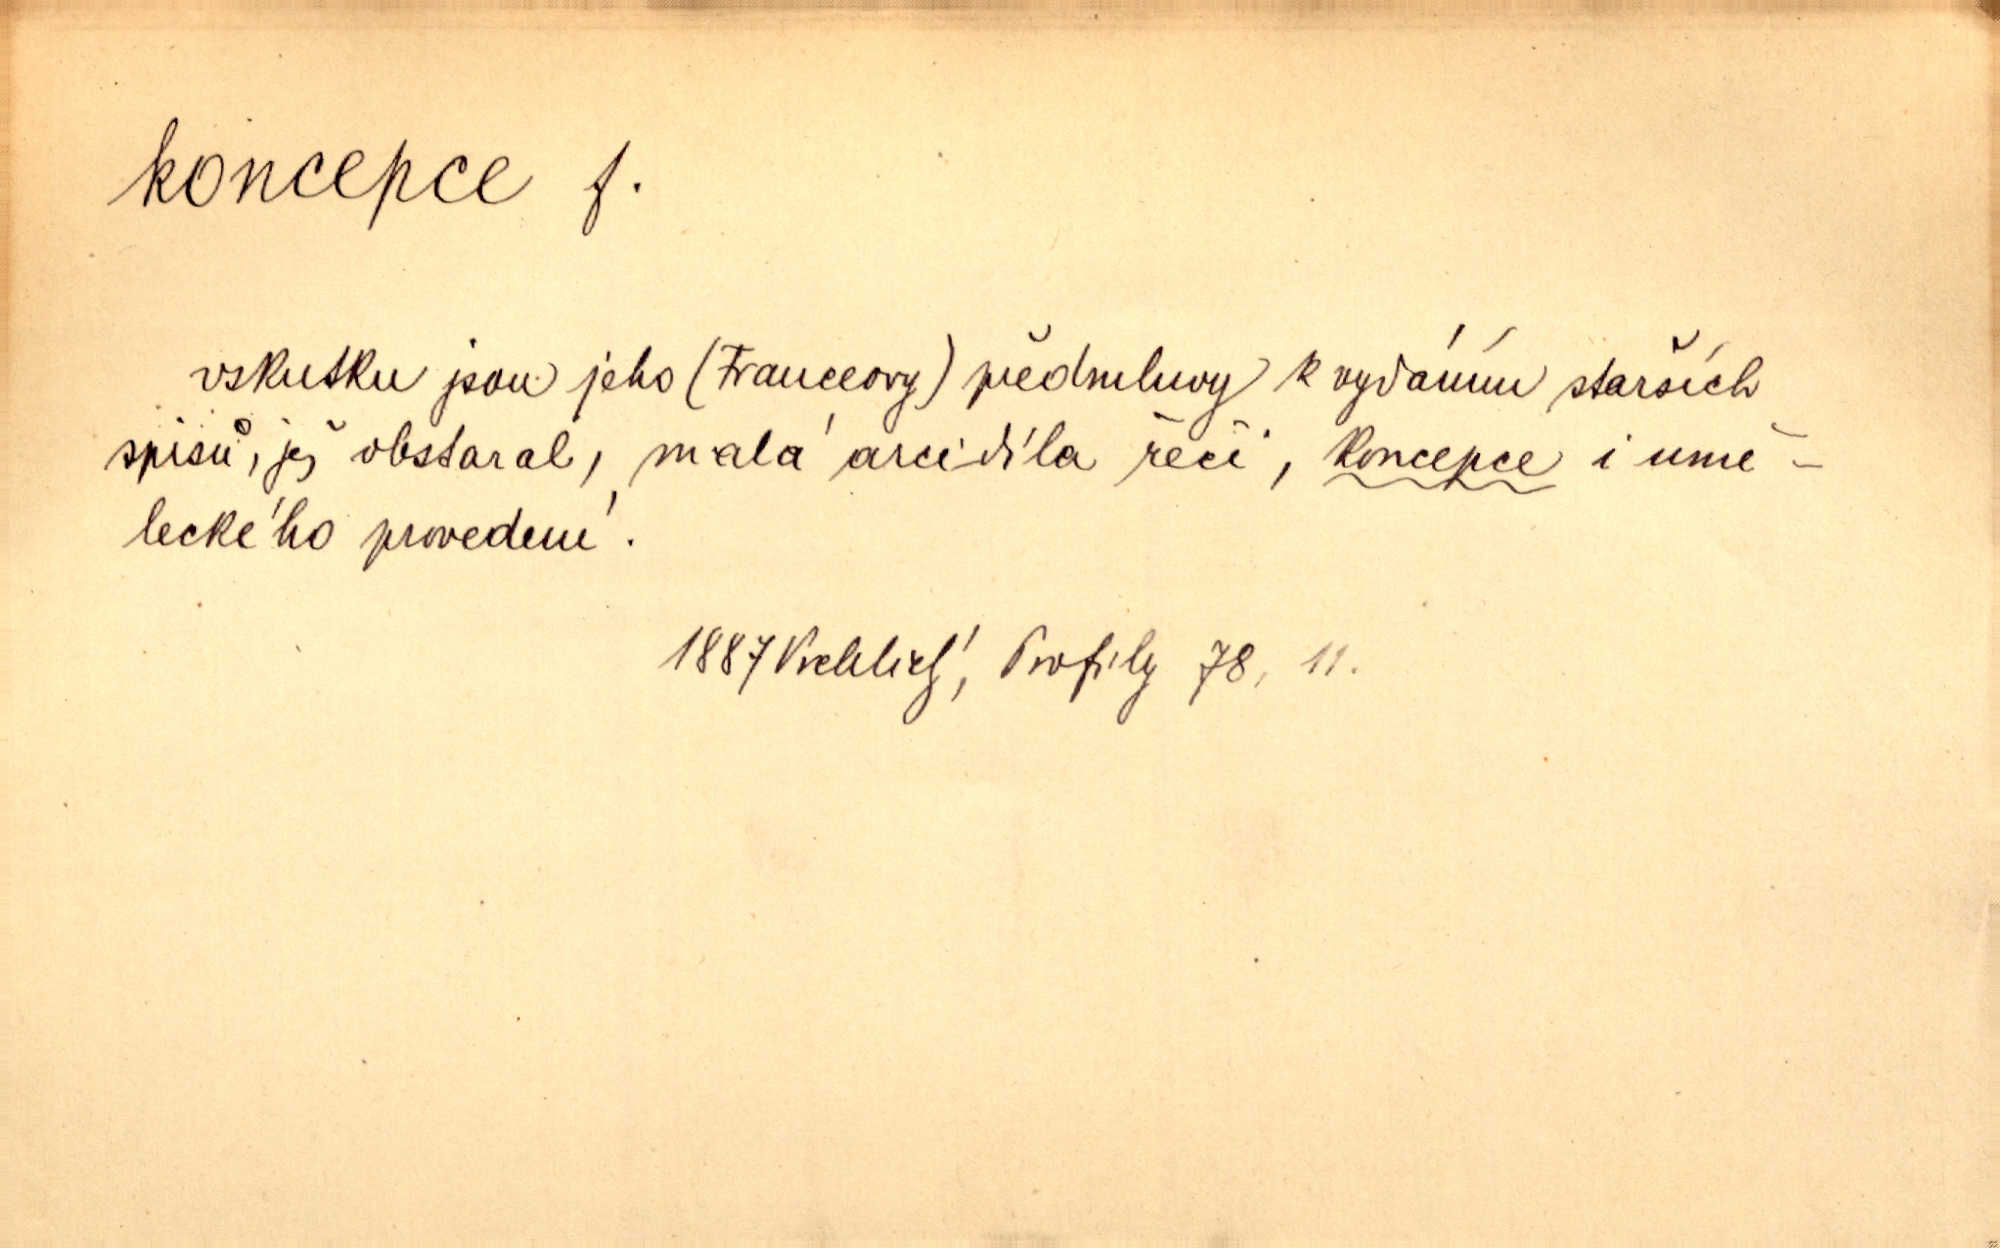 koncepce f.
vskutku jsou jeho (Franceovy) předmluvy k vydáním starších
spisů, jež obstaral, malá arcidíla řeči, koncepce i umě-
leckého provedení.
1887 Vrchlický, Profily 78, 11.